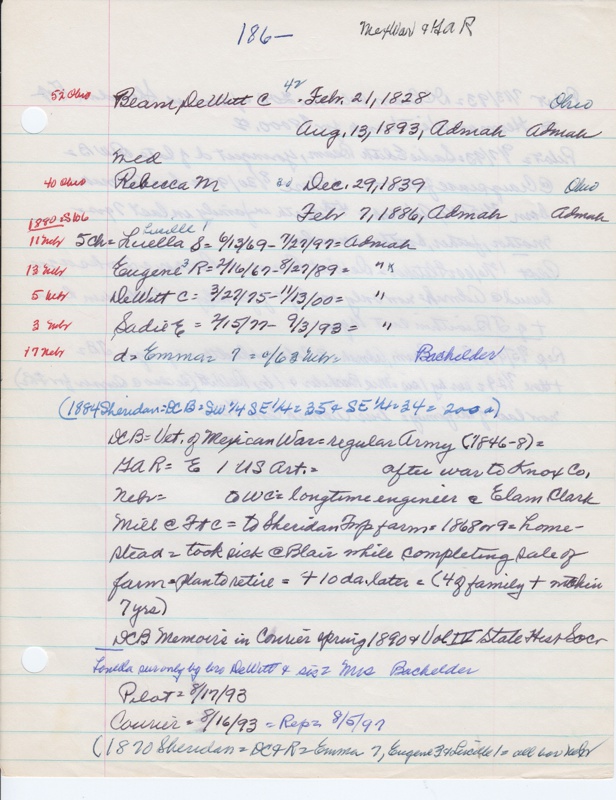 186- Mex War & GAR
52 Ohio Beam, DeWitt C 42 . Feb. 21, 1828 Ohio
Aug, 13, 1893, Admah Admah
med
40 Ohio Rebecca M Dec. 29, 1839 Ohio
Feb 7, 1886, Admah Admah
1880 = S106 Lucille 1
11 Nebr 5 Ch = Luella B = 6/13/69 - 7/27/97 = Admah
13 Nebr Eugene 3 R = 2/16/67 - 8/27/89 = " "
5 Nebr DeWitt C = 3/27/75 - 11/13/00 = "
3 Nebr Sadie E = 2/15/77 - 9/3/93 = "
17 Nebr d = Emma = 7 = 0/63 Nebr = Bachelder
(1884 Sheridan = DCB = SW 1/4 SE 1/4 = 35 & SE 1/4 = 34 = 200 a)
DCB = Vet. of Mexican War = regular Army (1846-8) =
GAR = E 1 US Art. = after war to Knox Co,
Nebr = to WC = longtime engineer @ Elam Clark
Mill @ Ft C = to Sheridan Twp farm = 1868 or 9 = home-
stead = took sick @ Blair while completing sale of
farm = plan to retire = + 10 da. later = (4 of family + within
7 yrs)
DCB Memoirs in Courier spring 1890 & Vol IV State Hist Soc
Luella sur only by bro DeWitt & sis = Mrs Bachelder
Pilot = 8/17/93
Courier = 8/16/93 = Rep = 8/5/97
(1870 Sheridan = DC & R = Emma 7, Eugene 3 & Lucille 1 = all born Nebr